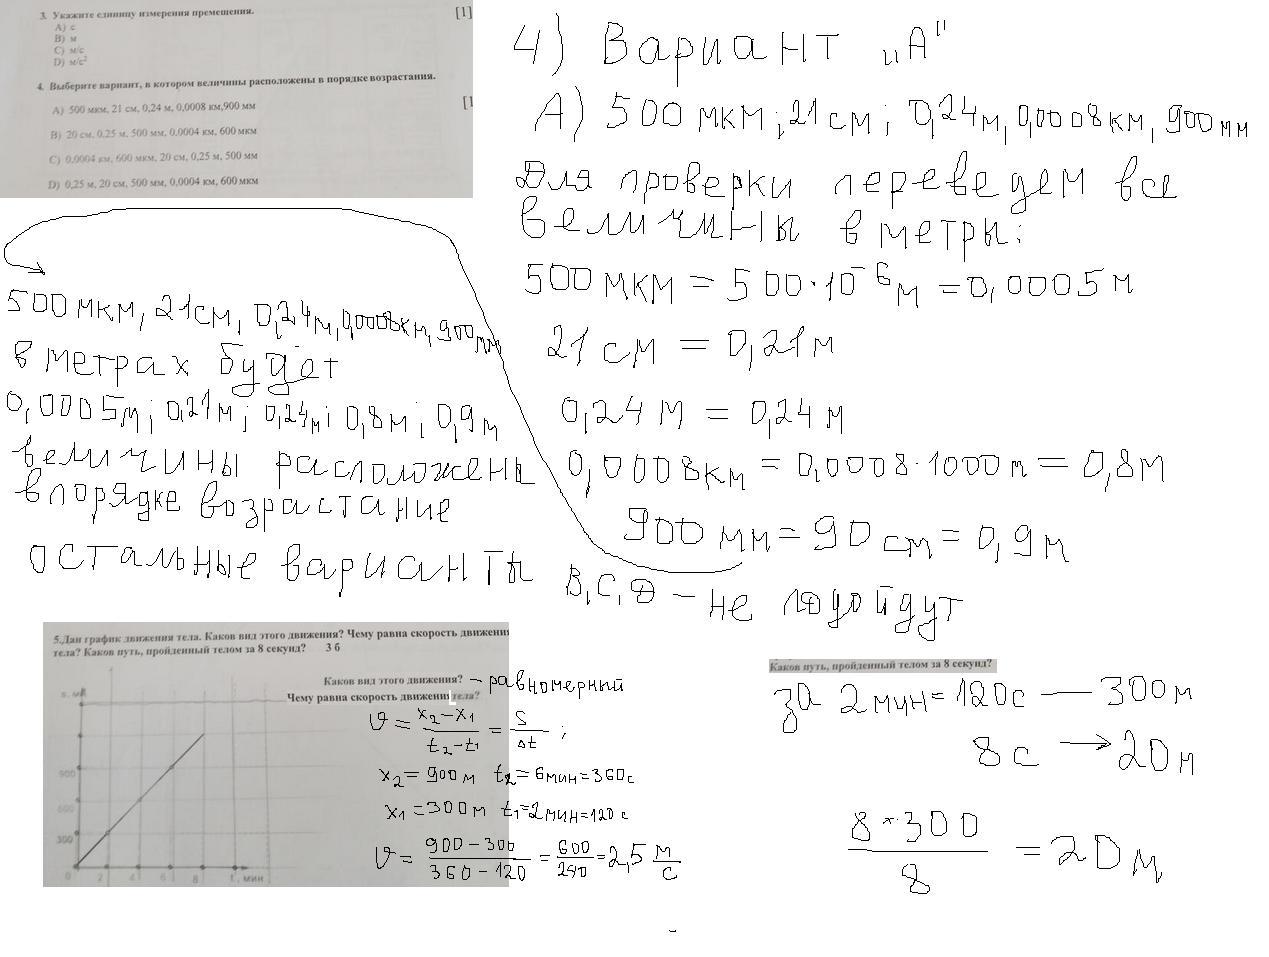 3. Укажите единицу измерения премешения. [1]
A) с
B) м
C) м/с
D) м/с²
4. Выберите вариант, в котором величины расположены в порядке возрастания. [1
A) 500 мкм, 21 см, 0,24 м, 0,0008 км,900 мм
B) 20 см, 0,25 м, 500 мм, 0,0004 км, 600 мкм
C) 0,0004 км, 600 мкм, 20 см, 0,25 м, 500 мм
D) 0,25 м, 20 см, 500 мм, 0,0004 км, 600 мкм
4) Вариант „А"
А) 500 мкм; 21 см; 0,24м, 0,0008км, 900 мм
Для проверки переведем все
величины в метры:
500 мкм = 500·10⁻⁶ м = 0,0005 м
21 см = 0,21 м
0,24 м = 0,24 м
0,0008 км = 0,0008·1000 м = 0,8 м
900 мм = 90 см = 0,9 м
B, C, D – не подойдут
500 мкм, 21 см, 0,24 м, 0,0008 км, 900 мм
в метрах будет
0,0005 м; 0,21 м; 0,24 м; 0,8 м; 0,9 м
величины расположены
в порядке возрастание
остальные варианты
5.Дан график движения тела. Каков вид этого движения? Чему равна скорость движения
тела? Каков путь, пройденный телом за 8 секунд? 3 б
Каков вид этого движения? – равномерный
Чему равна скорость движения тела?
v = (x₂ – x₁)/(t₂ – t₁) = S/Δt ;
x₂ = 900 м t₂ = 6 мин = 360 с
x₁ = 300 м t₁ = 2 мин = 120 с
v = (900 – 300)/(360 – 120) = 600/240 = 2,5 м/с
s, м
900
600
300
0 2 4 6 8 t, мин
Каков путь, пройденный телом за 8 секунд?
за 2 мин = 120 с — 300 м
8 с → 20 м
8 · 300 / 8 = 20 м